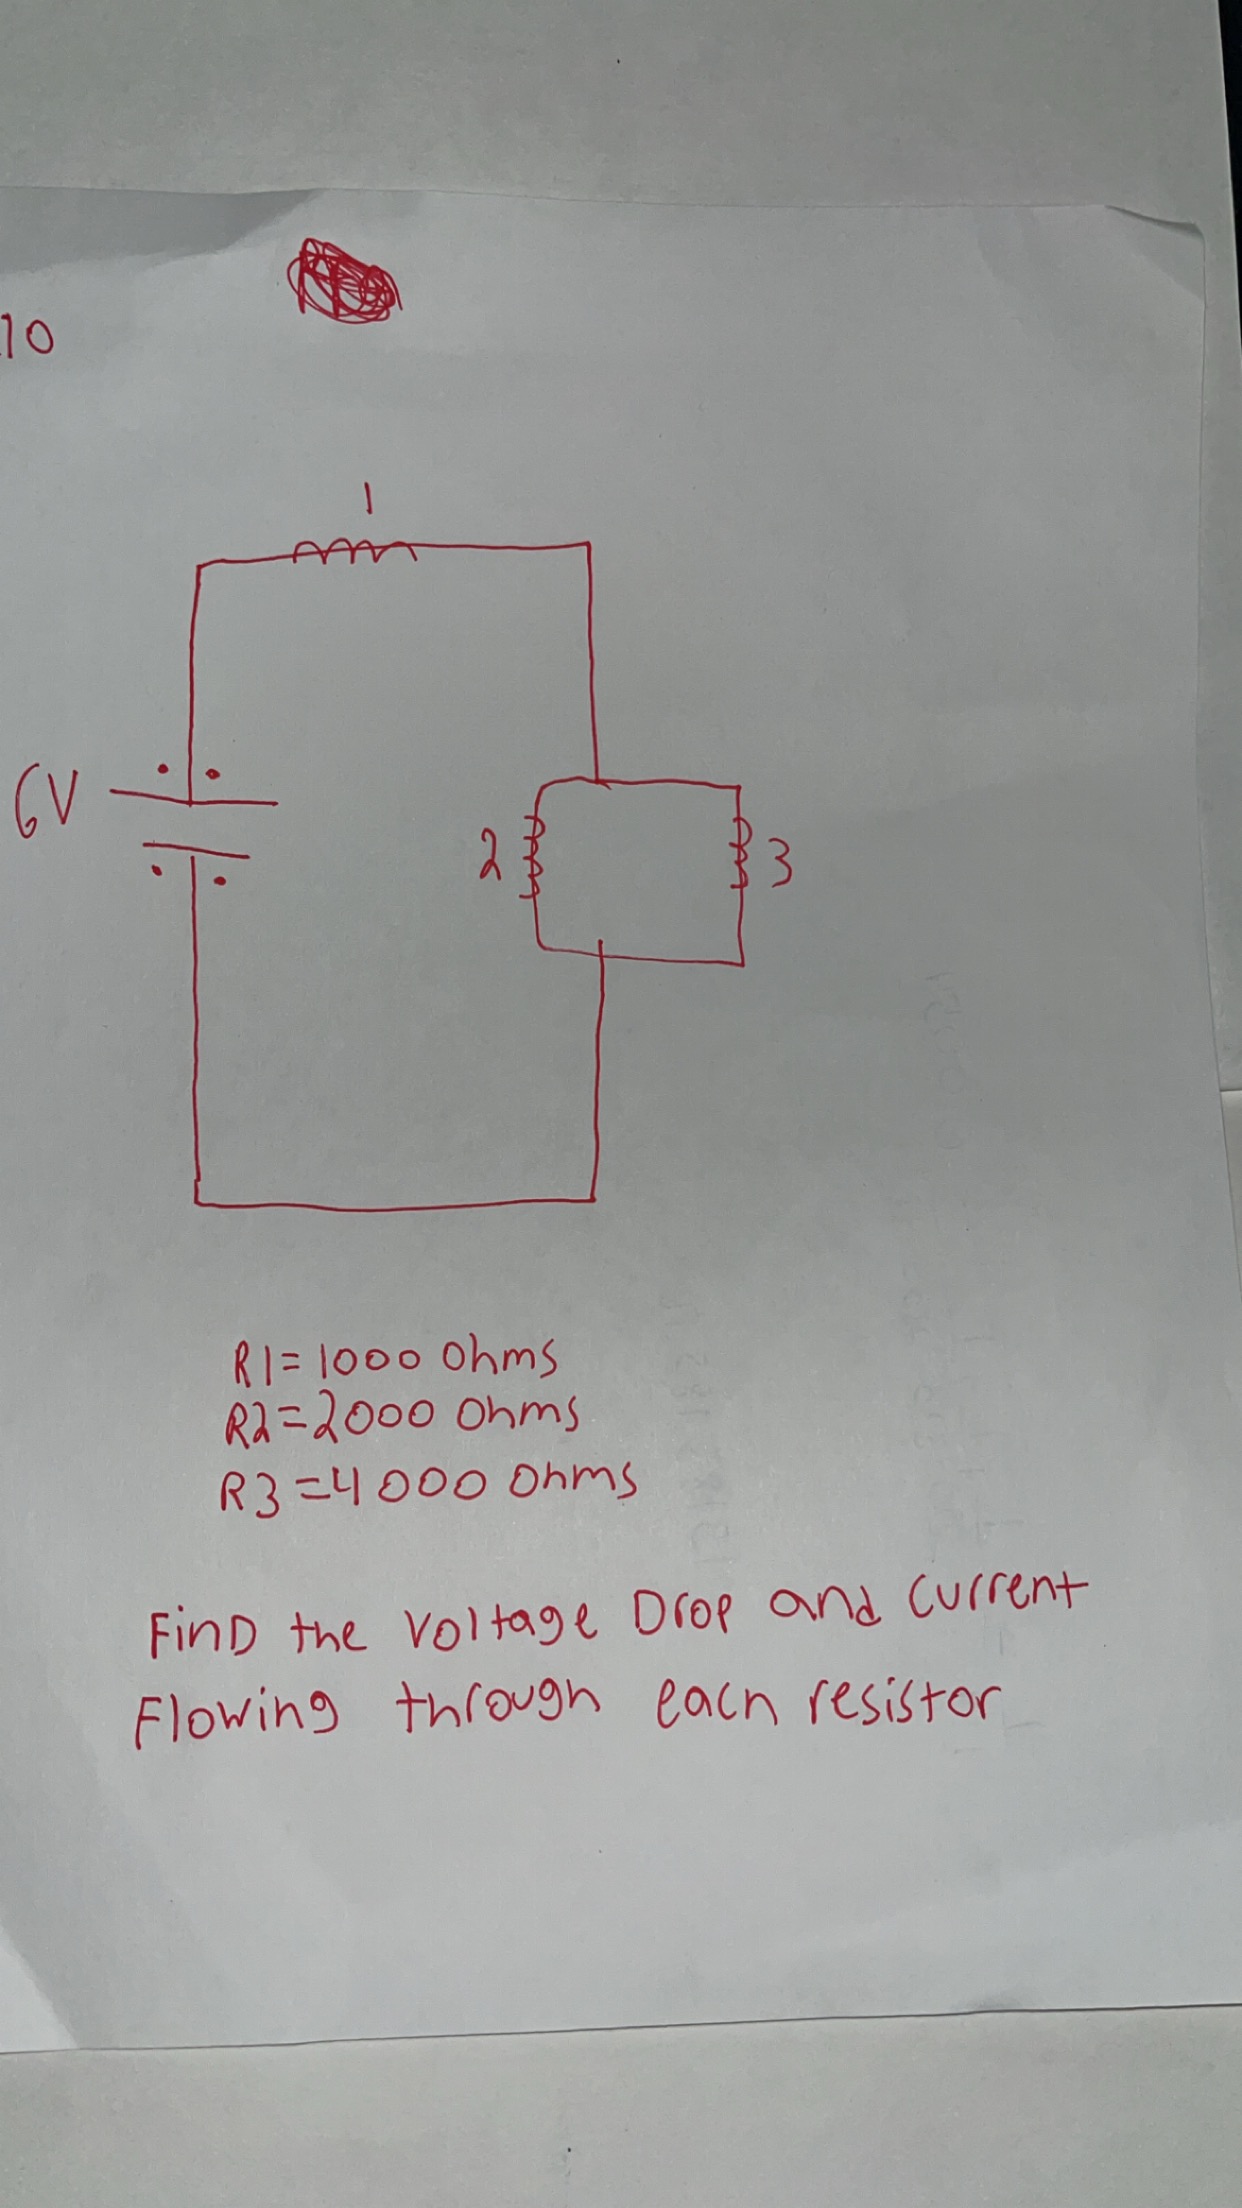 10
1
6V
2
3
R1=1000 Ohms
R2=2000 Ohms
R3=4000 Ohms
FinD the voltage Drop and current
Flowing through each resistor